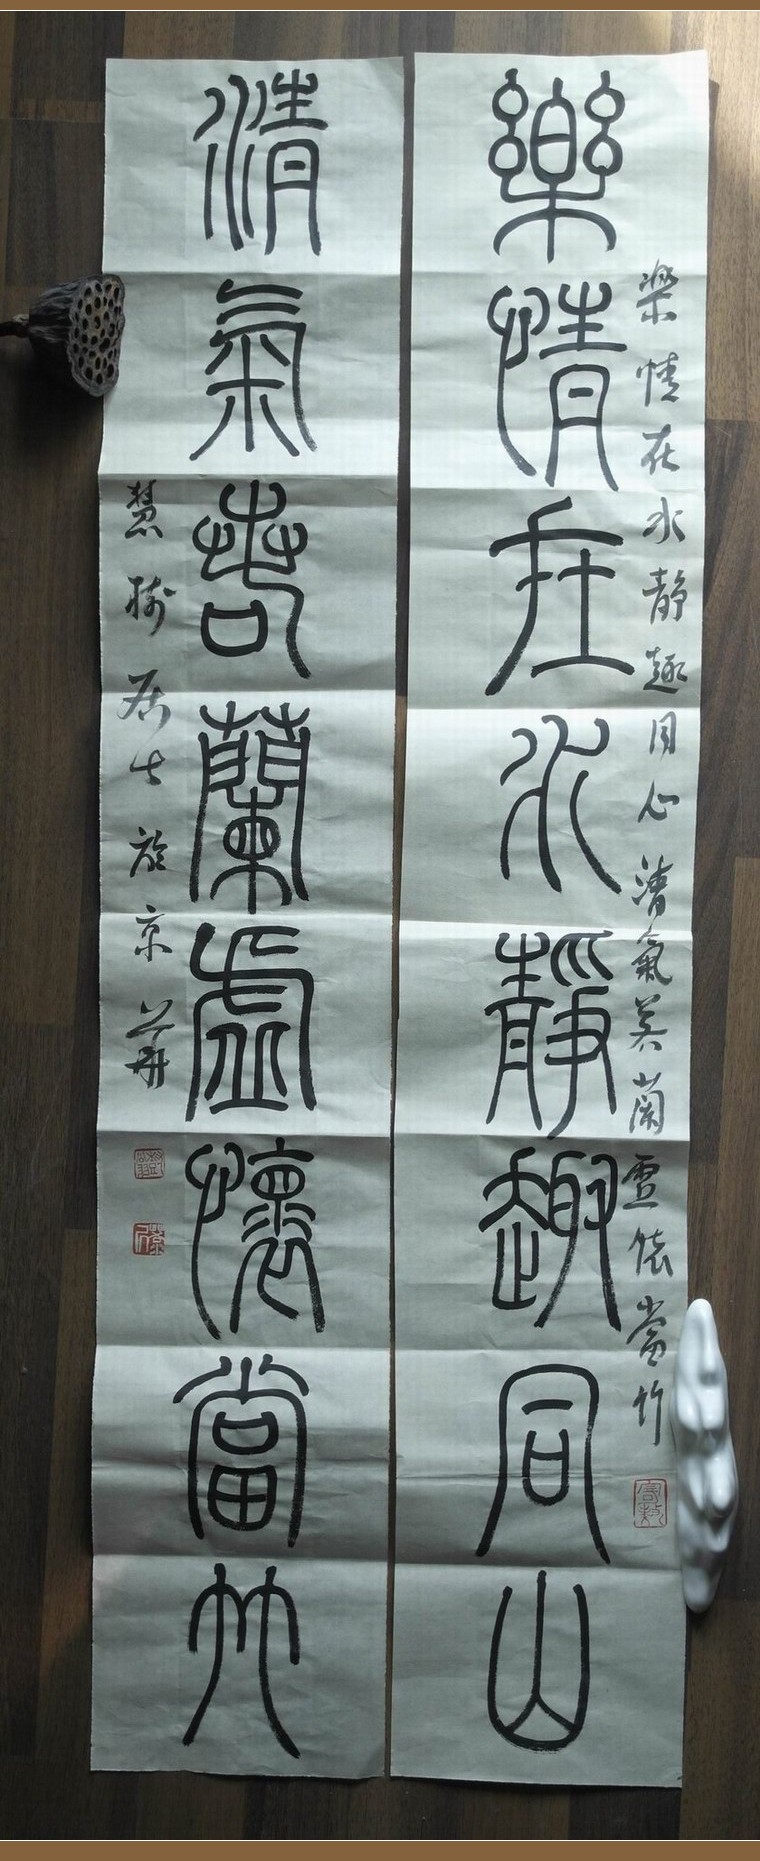 樂情在水静趣同山清氣若蘭虚懷當竹
樂情在水靜趣同山
清氣若蘭虛懷當竹
慧樹居士於京華